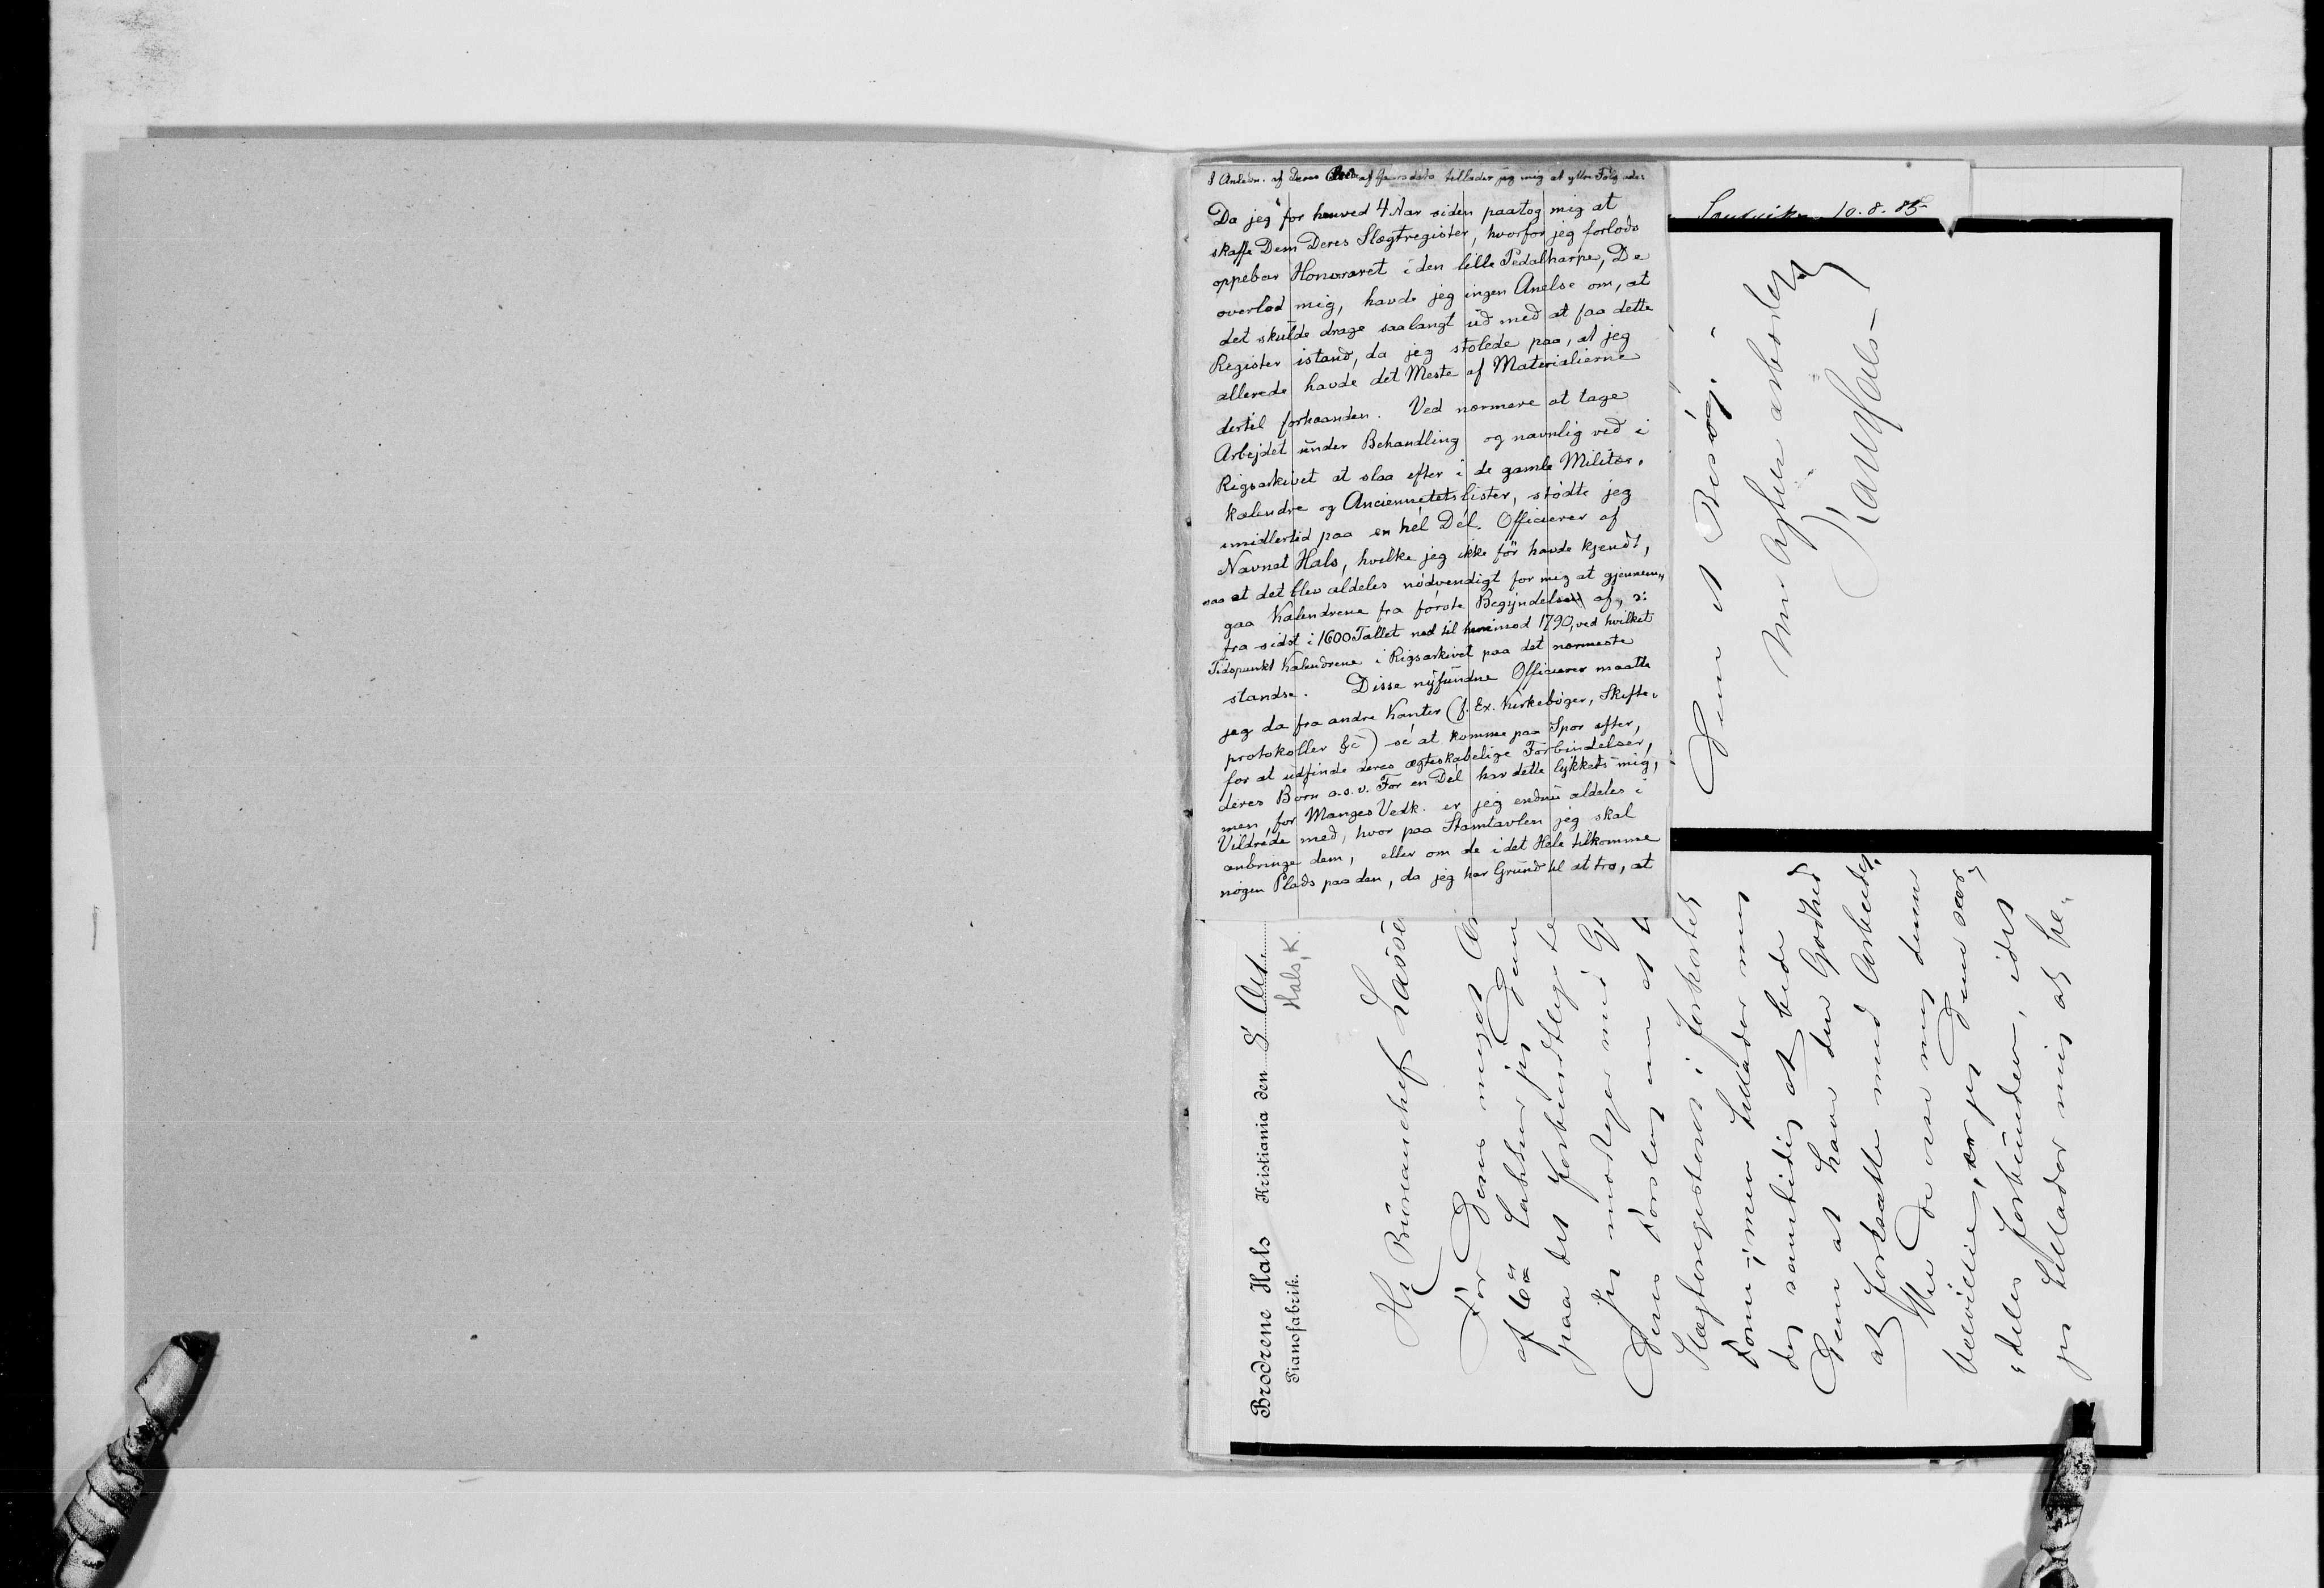 I Anledn. af Deres af Gaars dato tillader jeg mig at ytre Følgende:
Da jeg for henved 4 Aar siden paatog mig at
skaffe Dem Deres Slægtregister, hvorfor jeg forlods
oppebar Honoraret i den lille Pedalharpe, De
overlod mig, havde jeg ingen Anelse om, at
det skulde drage saalangt ud med at faa dette
Register istand, da jeg stolede paa, at jeg
allerede havde det Meste af Materialierne
dertil forhaanden. Ved nærmere at tage
Arbejdet under Behandling og navnlig ved i
Rigsarkivet at slaa efter i de gamle Militær-
kalendre og Anciennetetslister, stödte jeg
imidlertid paa en hél Dél. Officierer af
Navnet Hals, hvilke jeg ikke för havde kjendt,
saa at det blev aldeles nödvendigt for mig at gjennem-
gaa Kalendrene fra förste Begyndelsen af, ɔ:
fra sidst i 1600 Tallet ned til henimod 1790, ved hvilket
Tidspunkt Kalendrene i Rigsarkivet paa det nærmeste
standse. Disse nyfundne Officierer maatte
jeg da fra andre Kanter (f. Ex. Kirkebøger, Skifte-
protokoller &c) sé at komme paa Spor efter,
for at udfinde deres ægteskabelige Forbindelser,
deres Börn o.s.v. For en Dél har dette lykkets mig,
men for Manges Vedk. er jeg endnu aldeles i
Vildréde med, hvor paa Stamtavlen jeg skal
anbringe dem, eller om de i det Hele tilkomme
nogen Plads paa den, da jeg har Grund til at tro, at
Sandviken 10.8.85
Dem et Besøg.
Med Agtelse ærbødigst
Karl Hals
Brødrene Hals
Pianofabrik.
Kristiania den 8 Au
Hals, K.
Hr Büreauchef Lasse
For Deres meget
af 6te takker jeg Dem
paa det forbindtligste
Jeg modtager med
Deres Forslag om at
Slægtregisteret i forkortet
Form; men tillader mig
dog samtidig at bede
Dem at have den Godhed
at fortsætte med Arbeidet.
Vil De vise mig denne
Velvillie, er jeg Dem sær-
deles forbunden, idet
jeg tillader mig at be-